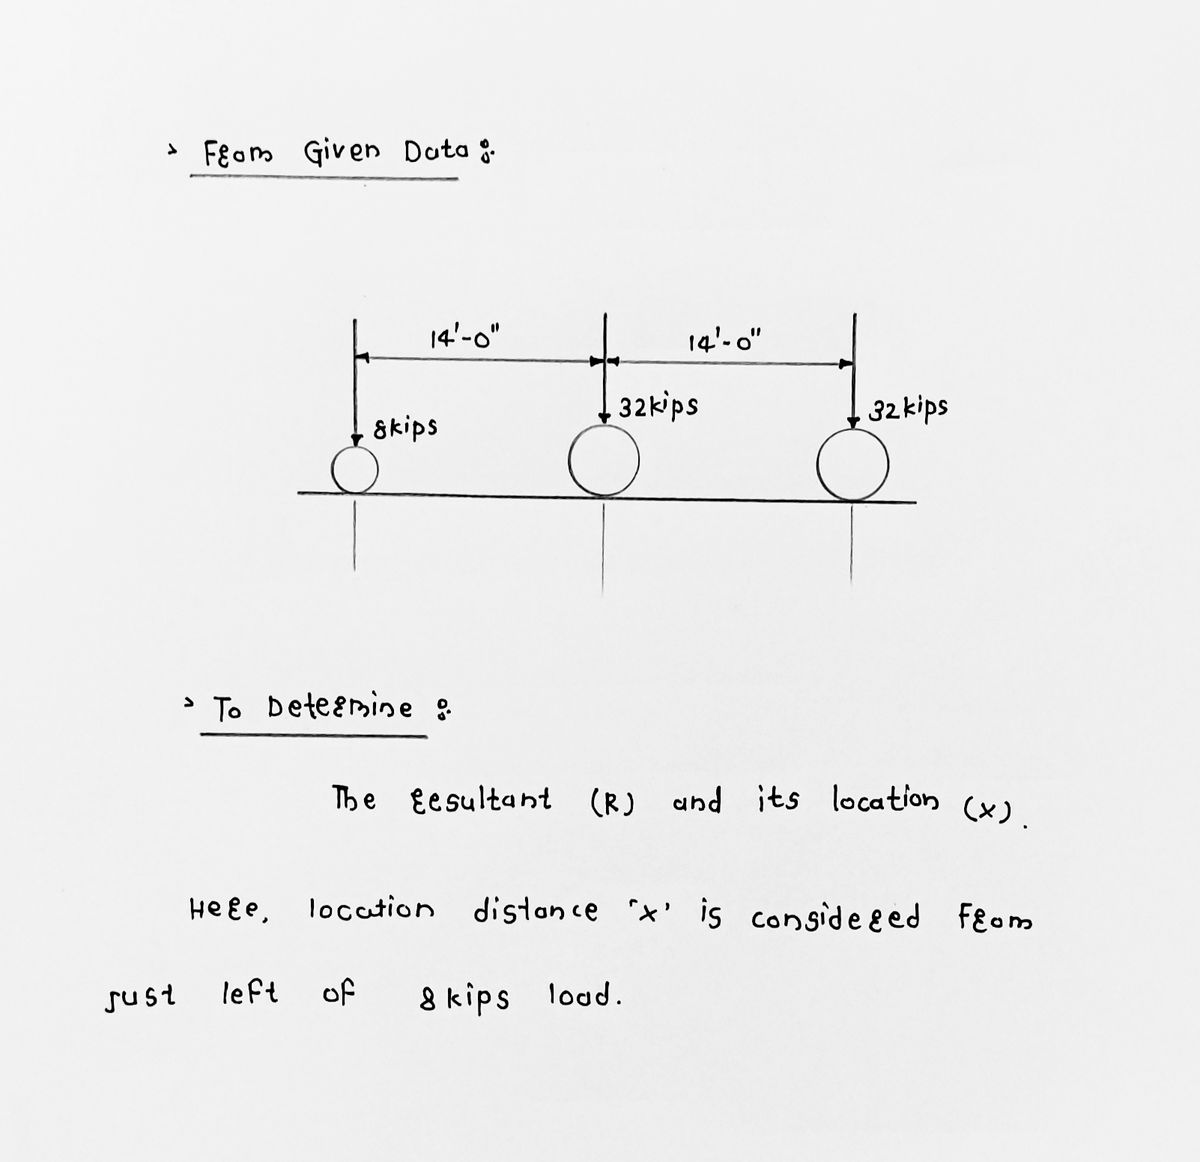 > From Given Data :-
14'-0" 14'-0"
8kips 32kips 32kips
> To Determine :-
The resultant (R) and its location (x).
Here, location distance 'x' is considered from
just left of 8 kips load.